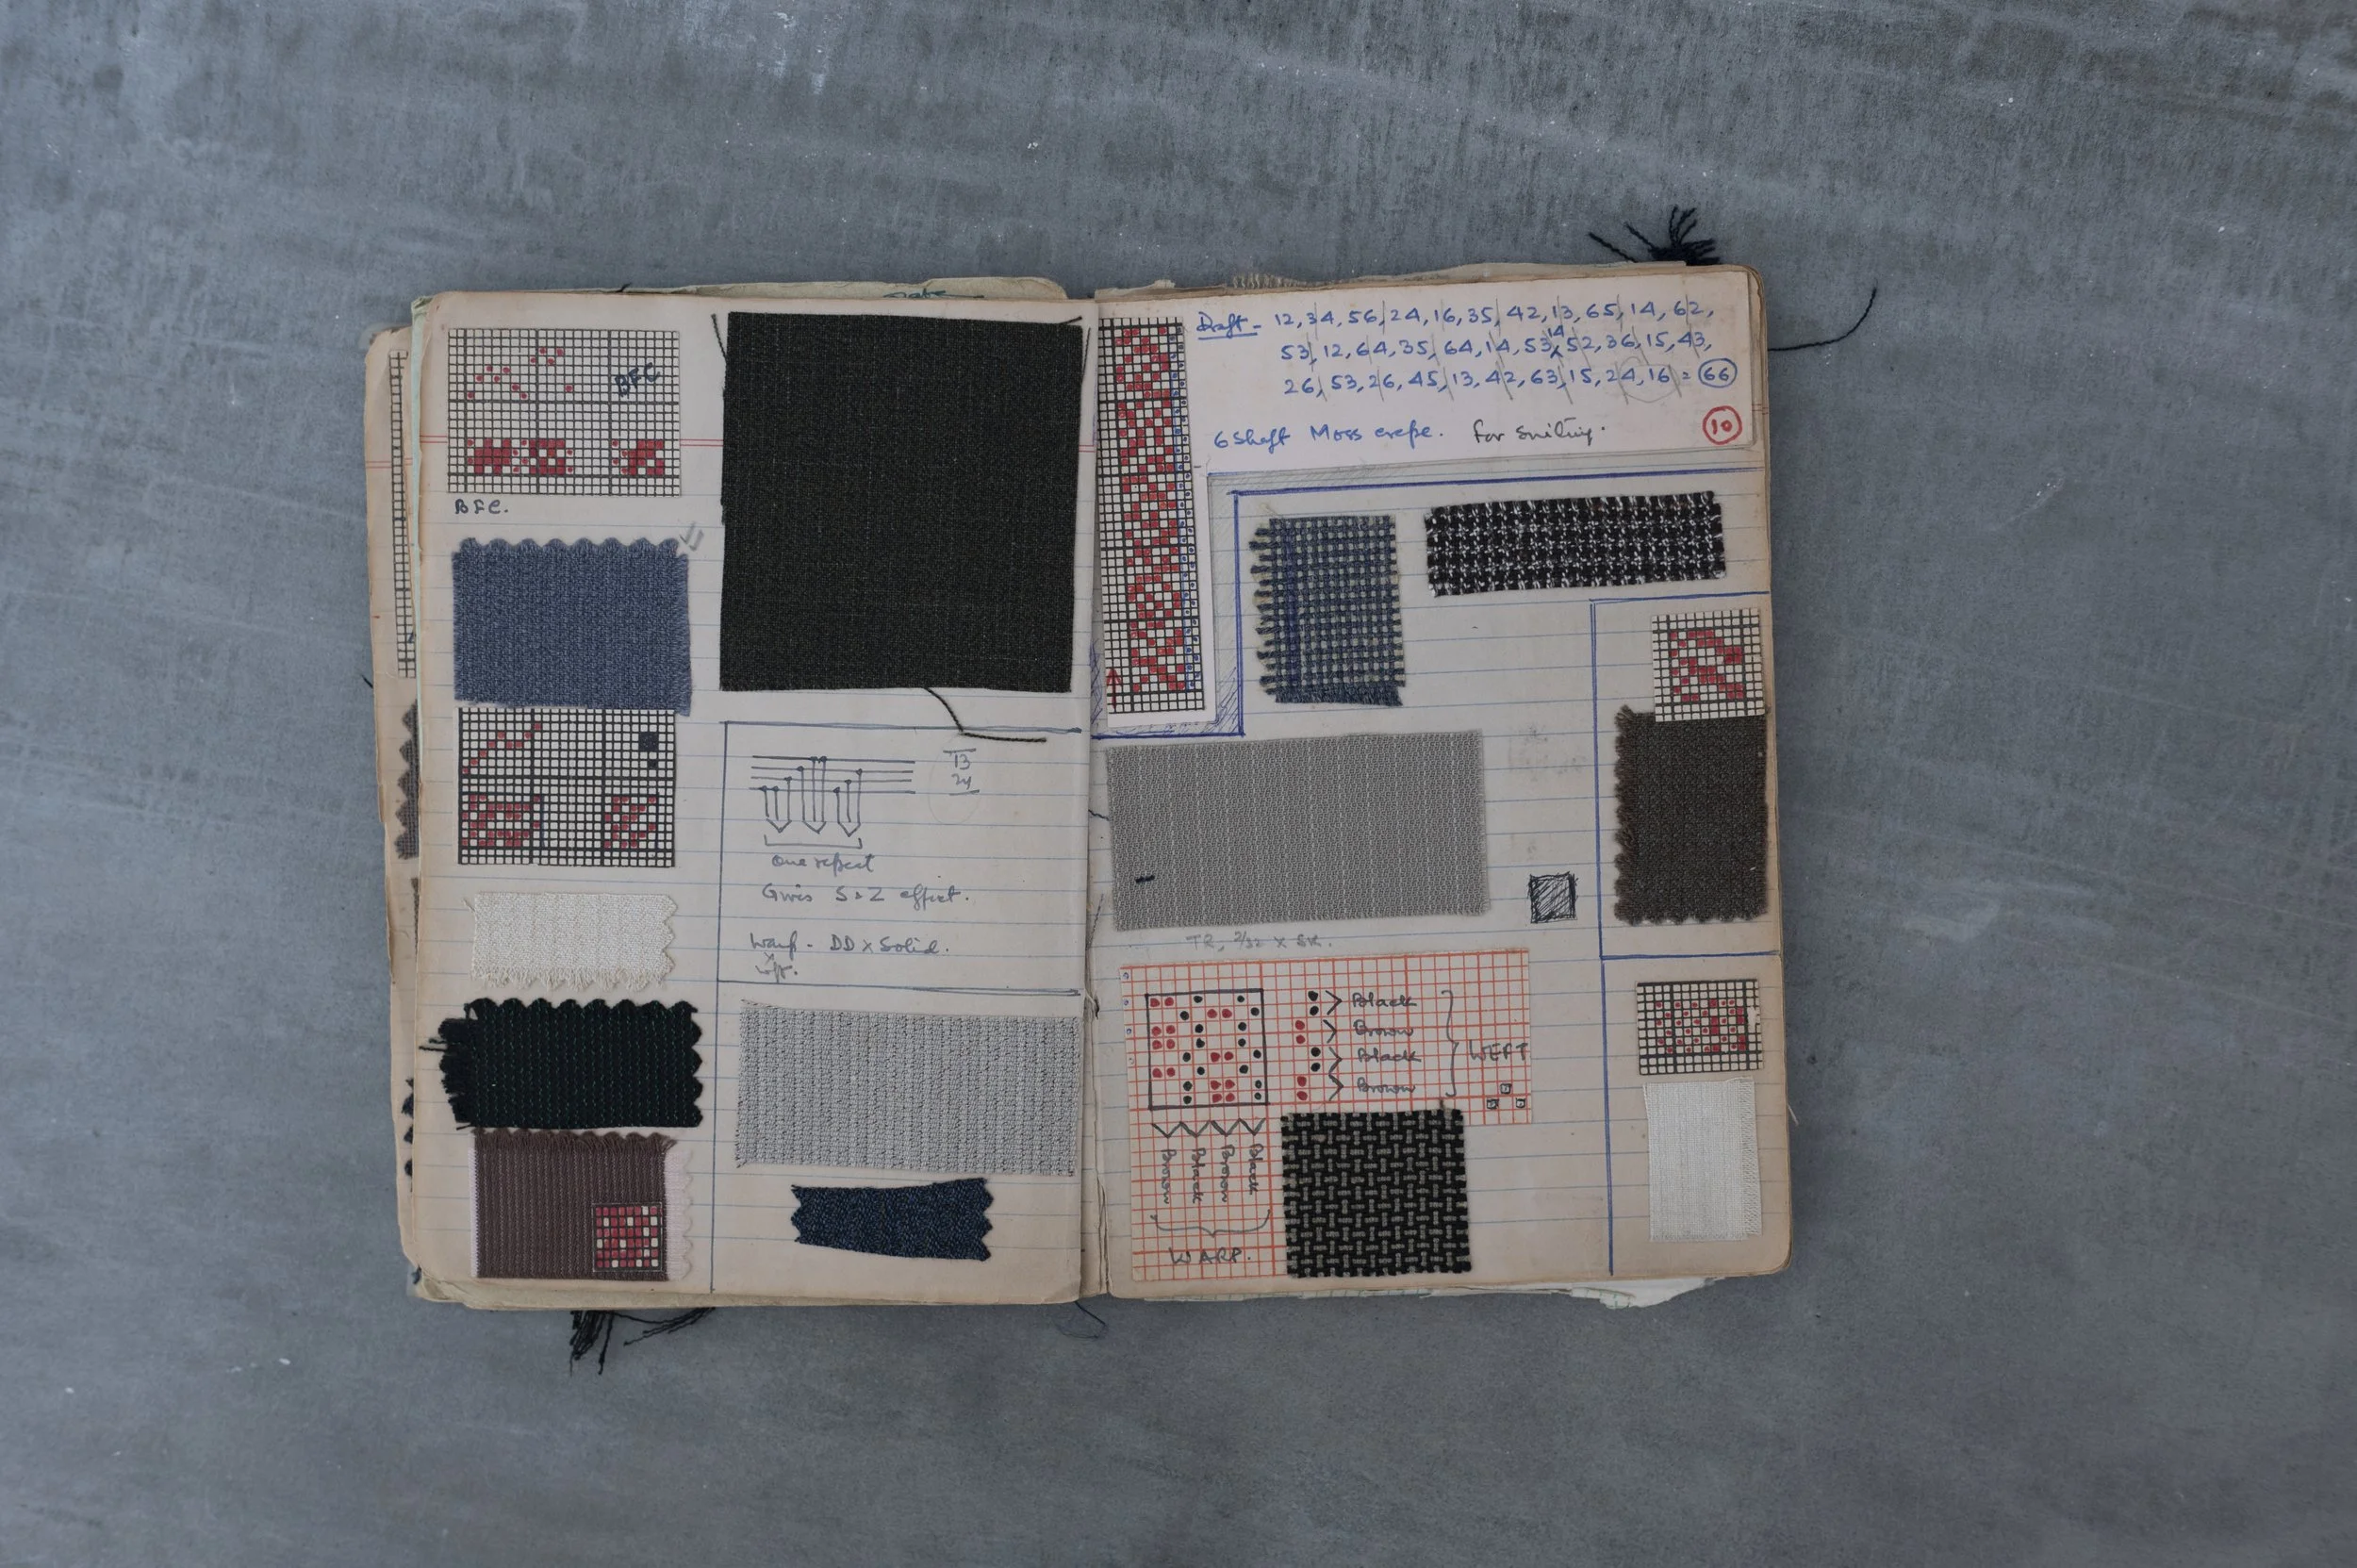 BFC
BFC.
13
24
One repeat
Gives S & Z effect.
Warp - DD x Solid.
Weft.
Draft - 12, 34, 56, 24, 16, 35, 42, 13, 65, 14, 62,
14
53, 12, 64, 35, 64, 14, 53, 52, 36, 15, 43,
26, 53, 26, 45, 13, 42, 63, 15, 24, 16 = 66
10
6 Shaft Moss crepe. for Suiting.
TR, 2/32 x
Black
Brown
Black
Brown
WEFT
Brown
Black
Brown
Black
WARP.